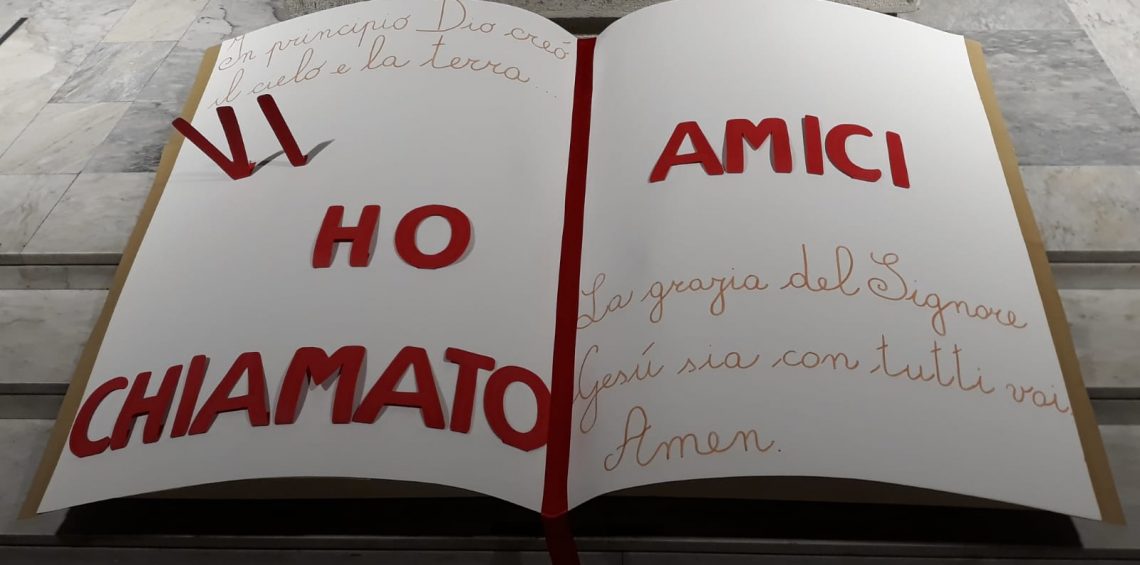 In principio Dio creó
il cielo e la terra...
VI
HO
CHIAMATO
AMICI
La grazia del Signore
Gesú sia con tutti voi.
Amen.